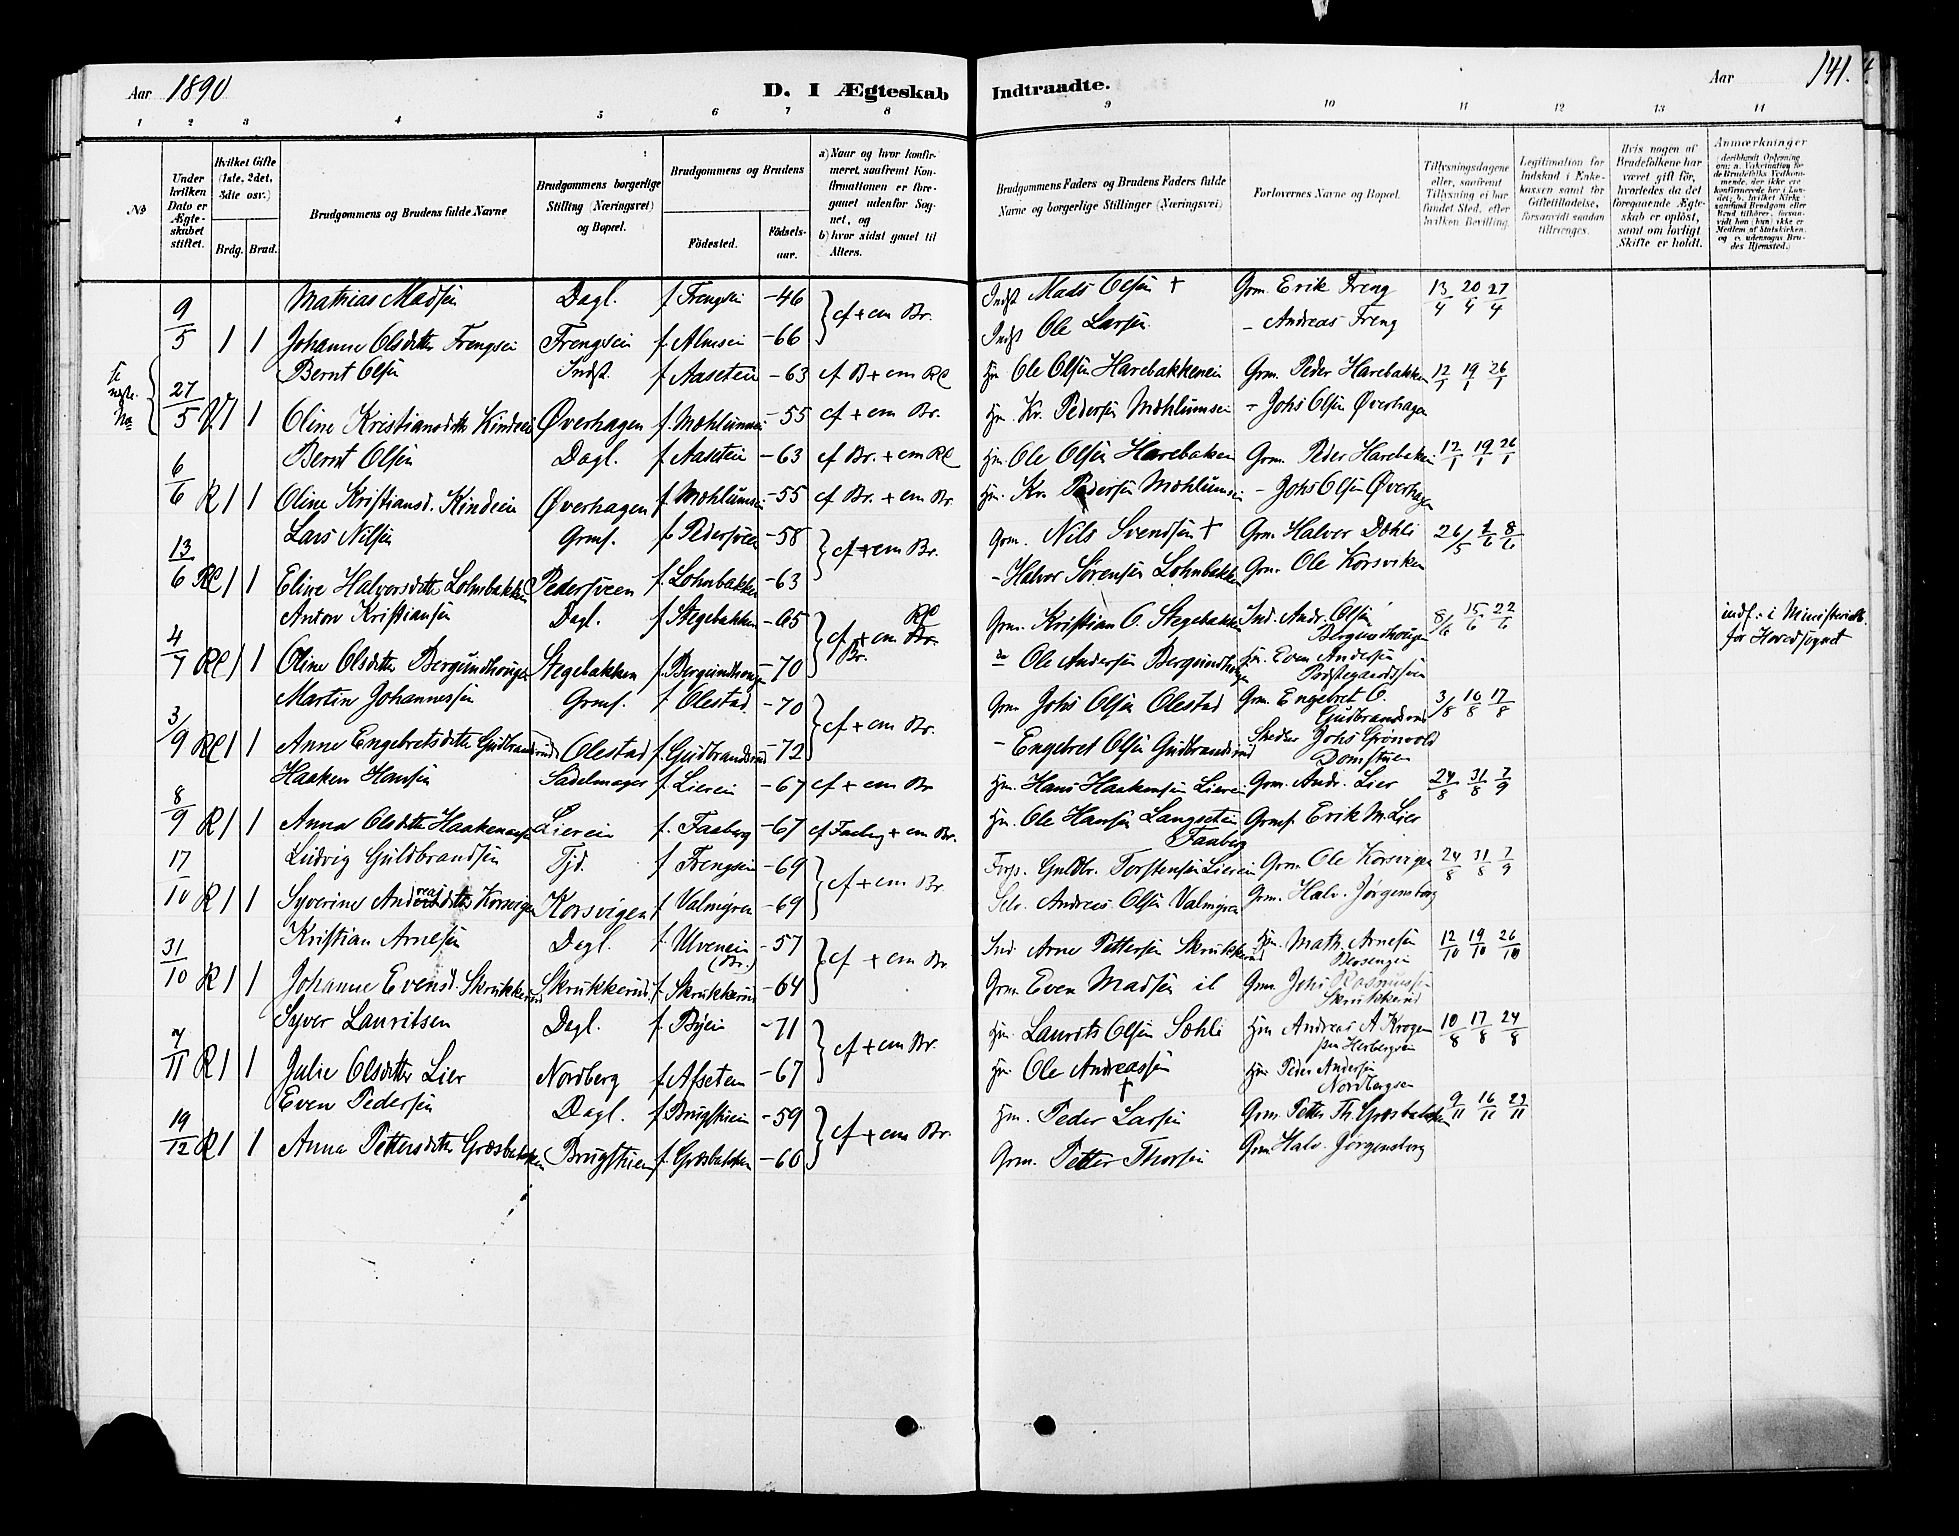 Aar 1890 D. I Ægteskab Indtraadte. Aar 141.
1 2 3 4 5 6 7 8 9 10 11 12 13 14
No
Under hvilken Dato er Ægteskabet stiftet.
Hvilket Gifte (1ste, 2det, 3die osv.)
Brdg. Brud.
Brudgommens og Brudens fulde Navne
Brudgommens borgerlige Stilling (Næringsvei) og Bopæl.
Brudgommens og Brudens
Fødested. Fødselsaar.
a) Naar og hvor konfirmeret, saafremt Konfirmationen er foregaaet udenfor Sognet, og
b) hvor sidst gaaet til Alters.
Brudgommens Faders og Brudens Faders fulde Navne og borgerlige Stillinger (Næringsvei)
Forlovernes Navne og Bopæl.
Tillysningsdagene eller, saafremt Tillysning ei har fundet Sted, efter hvilken Bevilling.
Legitimation for Indskud i Enkekassen samt for Giftetilladelse, forsaavidt saadan tiltrænges.
Hvis nogen af Brudefolkene har været gift før, hvorledes da det foregaaende Ægteskab er opløst, samt om lovligt Skifte er holdt.
Anmærkninger
Mathias Madsen Dagl. f Frengsei -46 } cf + em Br. Indst Mads Olsen + Grm. Erik Freng 13/4 20/4 27/4
9/5 1 1 Johanne Olsdtter Frengsei Frengsein f. Almsei -66 Indst Ole Larsen - Andreas Freng
Bernt Olsen Indst. f Aaseteie -63 cf B + em Rl Hm Ole Olsen Harebakkenein Grm. Peder Harebakken 12/1 19/1 26/1
27/5 1 1 Oline Kristiansdtr Kindein Øverhagen f. Mæhlumsei -55 cf + em Br. Hm. Kr. Pedersen Mæhlumsei - Johs Olsen Øverhagen
Bernt Olsen Dagl. f Aaseteie -63 cf Br. + em Rl Hm. Ole Olsen Harebaken Grm. Peder Harebaken 12/1 19/1 26/1
6/6 R 1 1 Oline Kristiansd. Kindein Øverhagen f. Mæhlumsei -55 cf Br. + em Br Hm. Kr. Pedersen Mæhlumsei - Johs Olsen Øverhagen
Lars Nilsen Grmf. f. Pedersveen -58 } cf + em Br. Grm. Nils Svendsen + Grm Halvor Dæhli 26/5 1/6 8/6
13/6 Rl 1 1 Eline Halvorsdtter Lohnbakken Pedersveen f. Lohnbakken -63 - Halvor Sørensen Lohnbakken Grm. Ole Korsviken
Anton Kristiansen Dagl. f Stegebakken -65 } cf + em Rl Br. Br. Grm. Kristian O. Stegebakken Ind. Andr. Olsen Bergundhougen 8/6 15/6 22/6 indf. i Ministerialb. for Hovedsognet
4/7 Rl 1 1 Oline Olsdtter Bergundhougen Stegebakken f. Bergundhougen -70 do Ole Andersen Bergundhougen Hm. Even Andersen Præstegaardssven
Martin Johannessen Grmf. f Olestad -70 } cf + em Br. Grm Johs Olsen Olestad Grm. Engebret O. Gudbrandsrud 3/8 10/8 17/8
3/9 Rl 1 1 Anne Engebretsdtter Gudbrandsrud Olestad f. Gudbrandsrud -72 - Engebret Olsen Gudbrandsrud Skrdr Johs Grønvold Domstuen
Haaken Hansen Sadelmager f. Lierein -67 cf + em Br Hm. Hans Haakensen Lierein Grm. Andr. Lier 24/8 31/8 7/9
8/9 R 1 1 Anna Olsdtter Haakenensen Lierein f. Faaberg -67 cf Faaberg + em Br. Hm. Ole Hansen Langsetein Faaberg Grmf. Erik M. Lier
Ludvig Guldbrandsen Tjd. f Frengsein -69 } cf + em Br Forp. Guldbr. Torstensen Lierein Grm. Ole Korsvigen 24/8 31/8 7/9
17/10 R 1 1 Syverine Andreasdtter Korsvigen Korsvigen f Valmyren -69 Selv. Andreas Olsen Valmyren Grm. Halv. Jørgensborg
Kristian Arnesen Dagl. f. Ulvenein (Br.) -57 } cf + em Br Ind. Arne Pettersen Skrukkerud Hm. Math. Arnesen Blosengen 12/10 19/10 26/10
31/10 R 1 1 Johanne Evensd. Skrukkerud Skrukkerud f. Skrukkerud -64 Grm. Even Madsen il Grm. Johs Rasmussen Skrukkerud
Syver Lauritsen Dagl. f Byein -71 } cf + em Br. Hm. Laurits Olsen Sæhli Hm Andreas A Krogen 10/8 17/8 24/8
7/11 R 1 1 Julie Olsdtter Lier Nordberg f Afseten -67 Hm. Ole Andreassen + Hm. Peder Andersen Nordbergsen
Even Pedersen Dagl. f Brugstuein -59 } cf + em Br. Hm. Peder Larsen Grm. Petter Th. Græsbakken 9/11 16/11 23/11
19/12 R 1 1 Anna Pettersdtter Græsbakken Brugstuen f. Græsbakken -60 Grm. Petter Thorsen Grm Halv. Jørgensborg